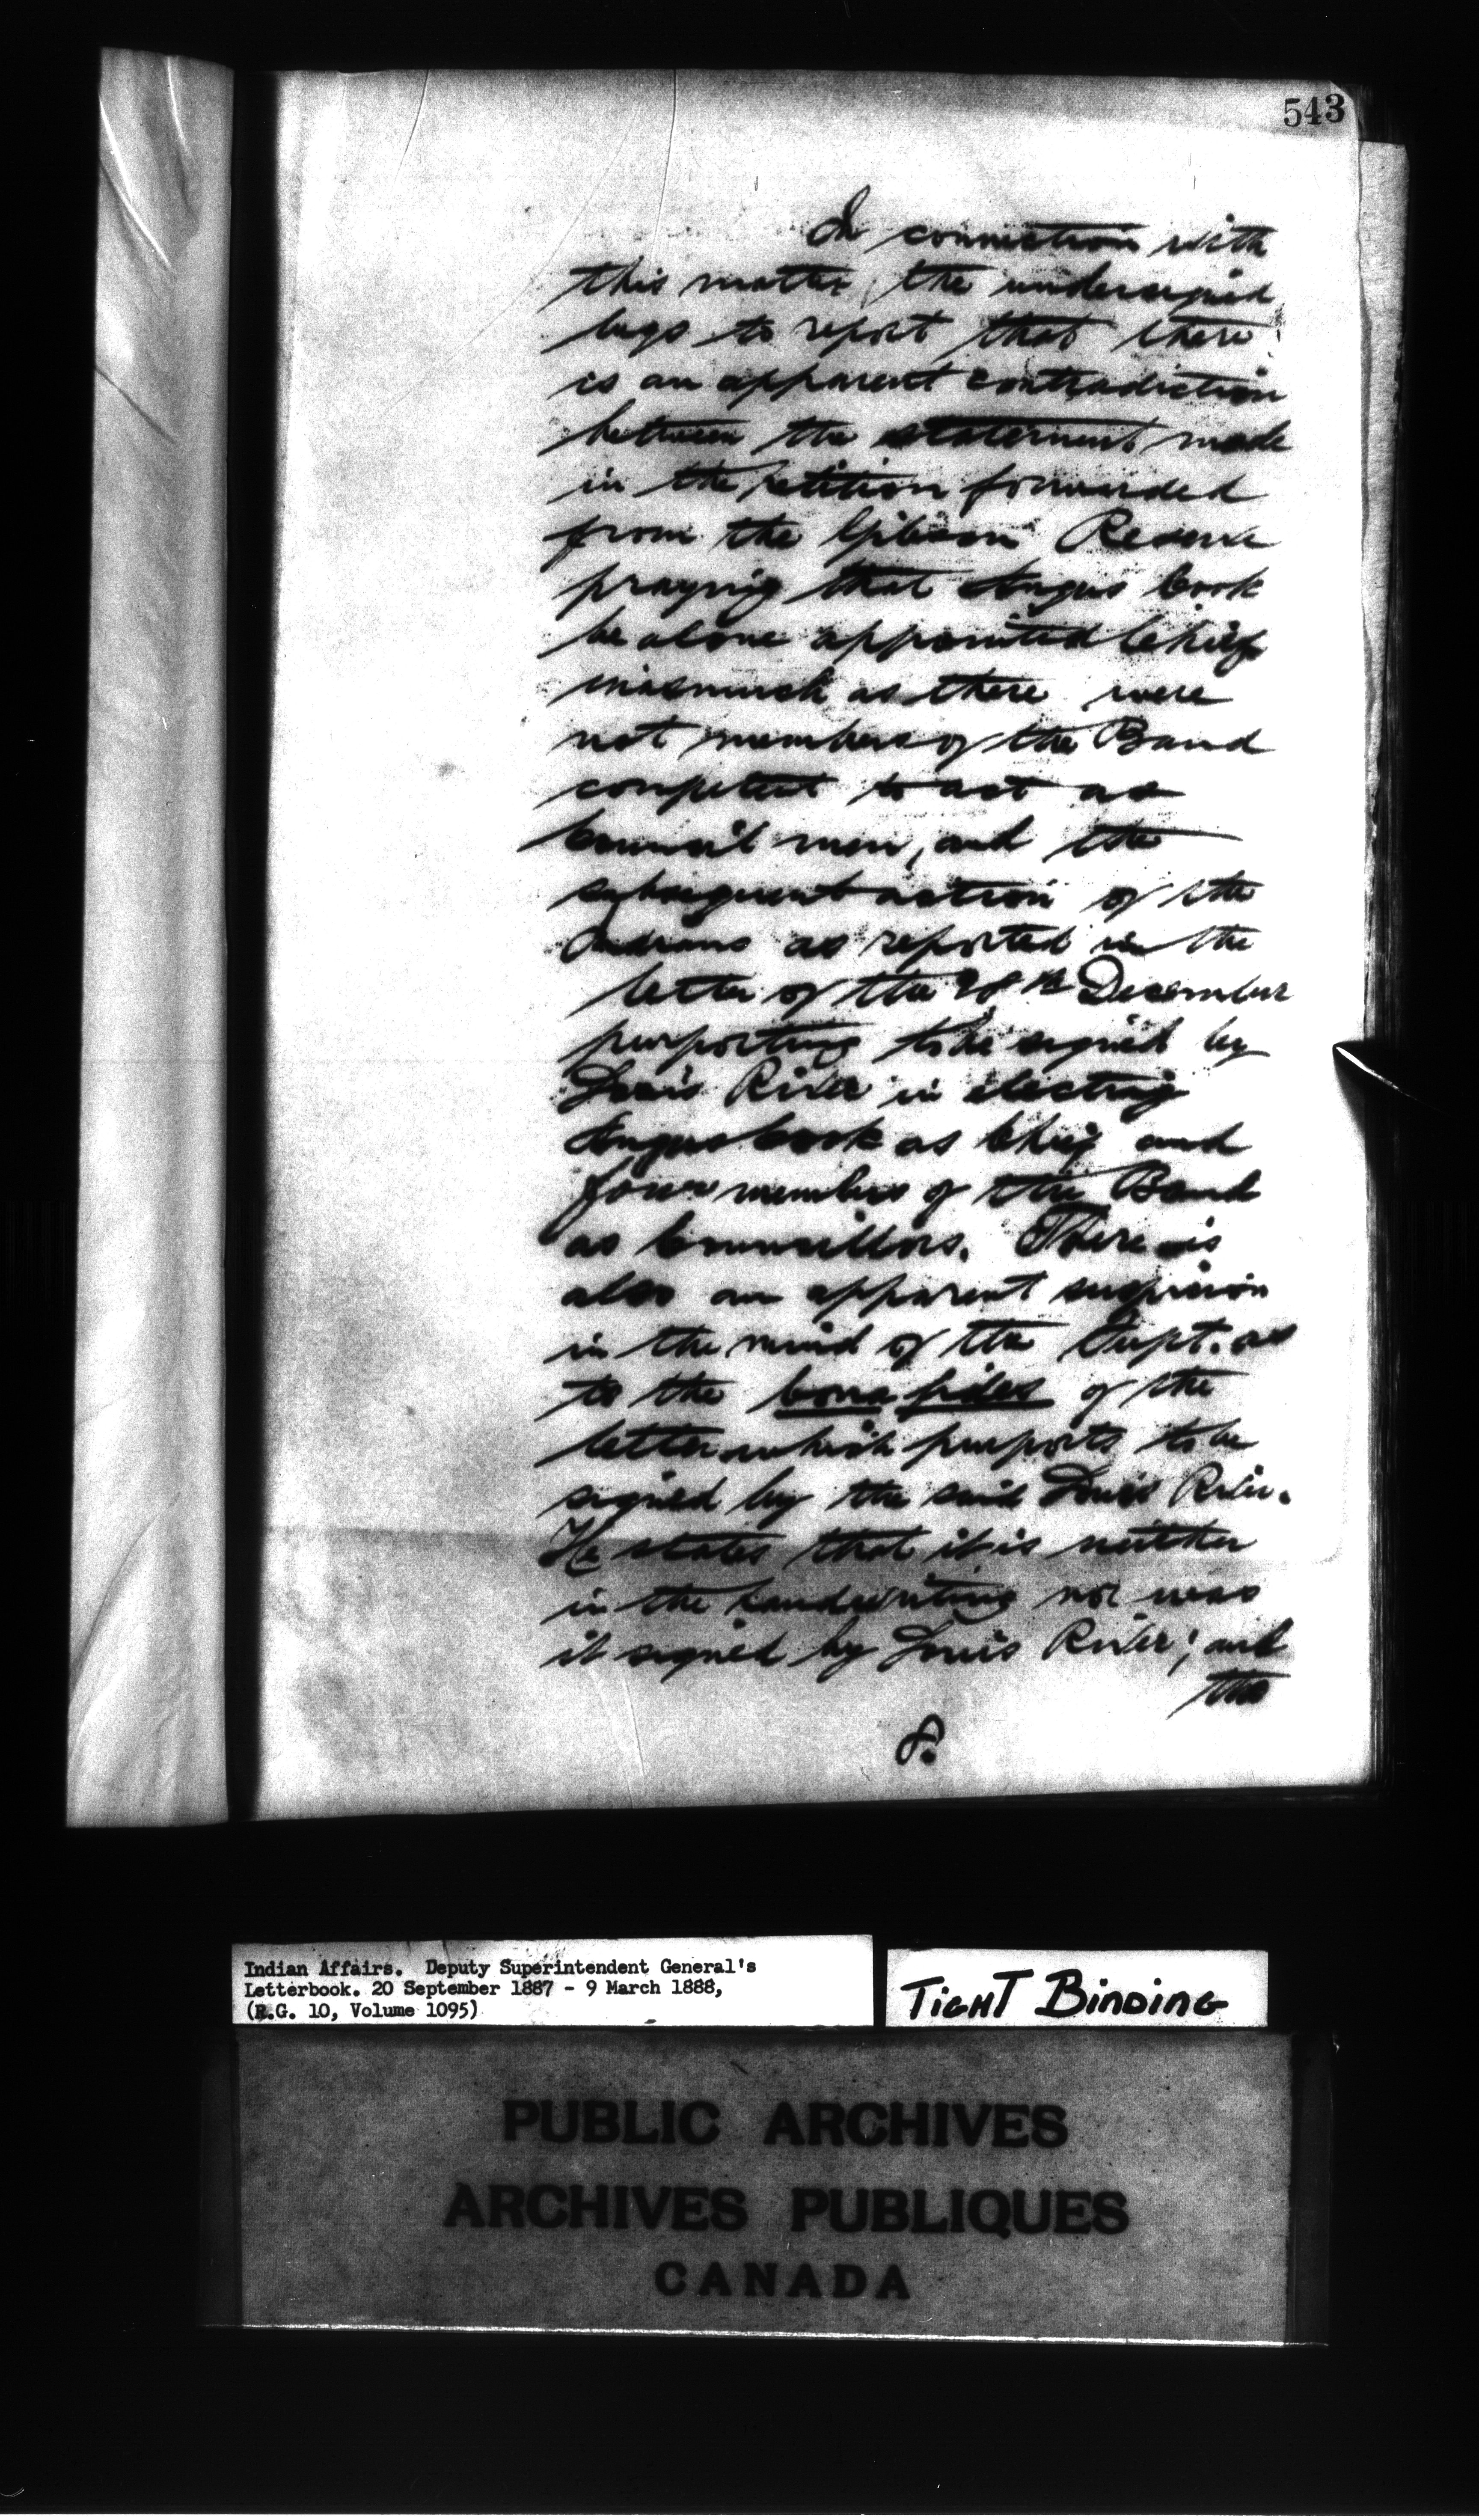 543
In connection with
this matter, the undersigned
begs to report that there
is an apparent contradiction
between the statement made
in the petition forwarded
from the Gibson Reserve
praying that Angus Cook
be alone appointed Chief
inasmuch as there were
not members of the Band
competent to act as
Council men, and the
subsequent action of the
Indians as reported in the
letter of the 28th December
purporting to be signed by
Louis River in electing
Angus Cook as Chief and
four members of the Band
as Councillors. There is
also an apparent suspicion
in the mind of the Supt. as
to the bona fides of the
letter which purports to be
signed by the said Louis River.
He states that it is neither
in the handwriting nor was
it signed by Louis River; and
the
Indian Affairs. Deputy Superintendent General's
Letterbook. 20 September 1887 - 9 March 1888,
(R.G. 10, Volume 1095)
TIGHT BINDING
PUBLIC ARCHIVES
ARCHIVES PUBLIQUES
CANADA